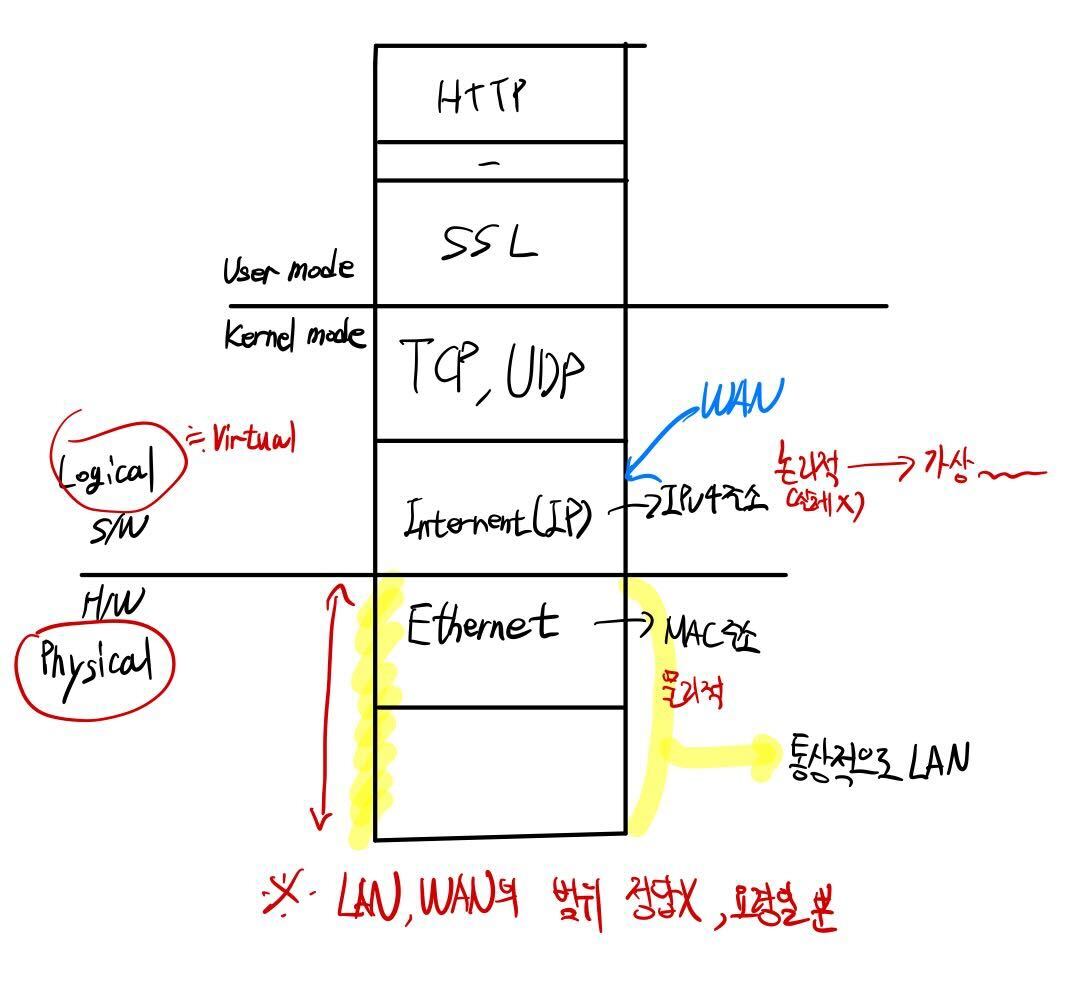 HTTP
-
SSL
User mode
Kernel mode
TCP, UDP
WAN
Logical
≒ Virtual
S/W
Internent(IP) → IPv4주소
논리적 → 가상
(실체X)
H/W
Physical
Ethernet → MAC주소
물리적
통상적으로 LAN
※ LAN, WAN의 범위 정답X, 요령일 뿐